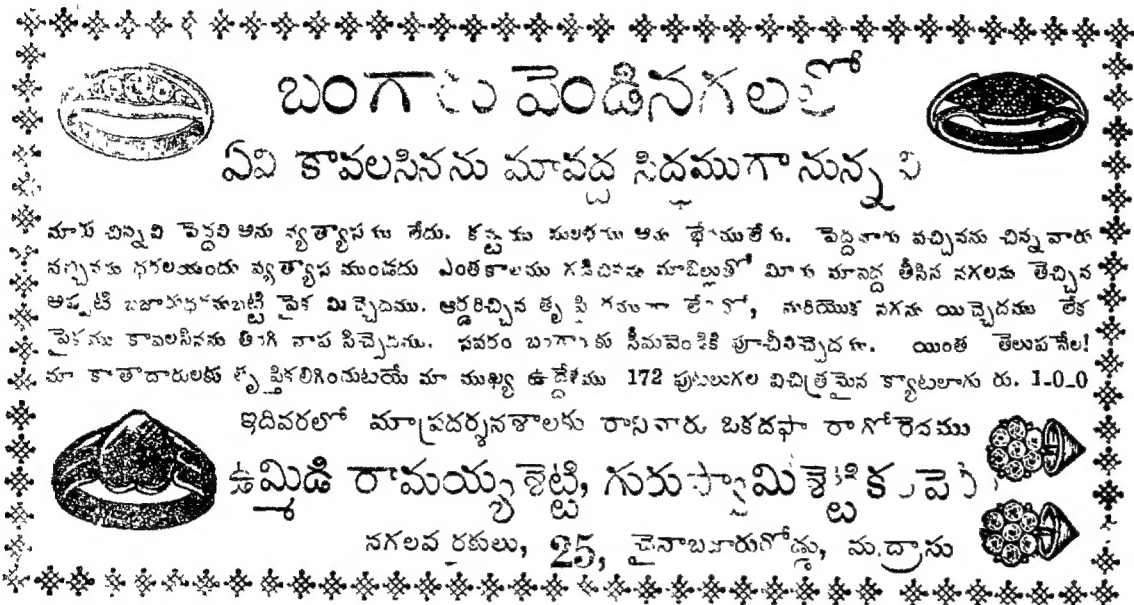 బంగారు వెండినగలలో
ఏవి కావలసినను మావద్ద సిద్ధముగా నున్నవి
మాకు చిన్నవి పెద్దవి అను వ్యత్యాసము లేదు. కష్టము సులభము అను భేదములేదు. పెద్దవారు వచ్చినను చిన్నవారు
వచ్చినను ధరలయందు వ్యత్యాస ముండదు ఎంతకాలము గడిచినను మాబిల్లుతో మీరు మావద్ద తీసిన నగలను తెచ్చిన
అప్పటి బజారుధరనుబట్టి పైక మిచ్చెదము. ఆర్డరిచ్చిన తృప్తి లేనిచో, మరియొక నగను యిచ్చెదము లేక
పైకము కావలసినను తిరిగి వాప సిచ్చెదము. సవరం బంగారుకు పూచీనిచ్చెదము. యింత తెలుపనేల!
మా ఖాతాదారులకు తృప్తికలిగించుటయే మా ముఖ్య ఉద్దేశము 172 పుటలుగల విచిత్రమైన క్యాటలాగు రు. 1-0-0
ఇదివరలో మాప్రదర్శనశాలకు రానివారు ఒకదఫా రాగోరెదము
ఉమ్మిడి రామయ్యశెట్టి, గురుస్వామిశెట్టి కంపెనీ
నగలవర్తకులు, 25, చైనాబజారురోడ్డు, మద్రాసు